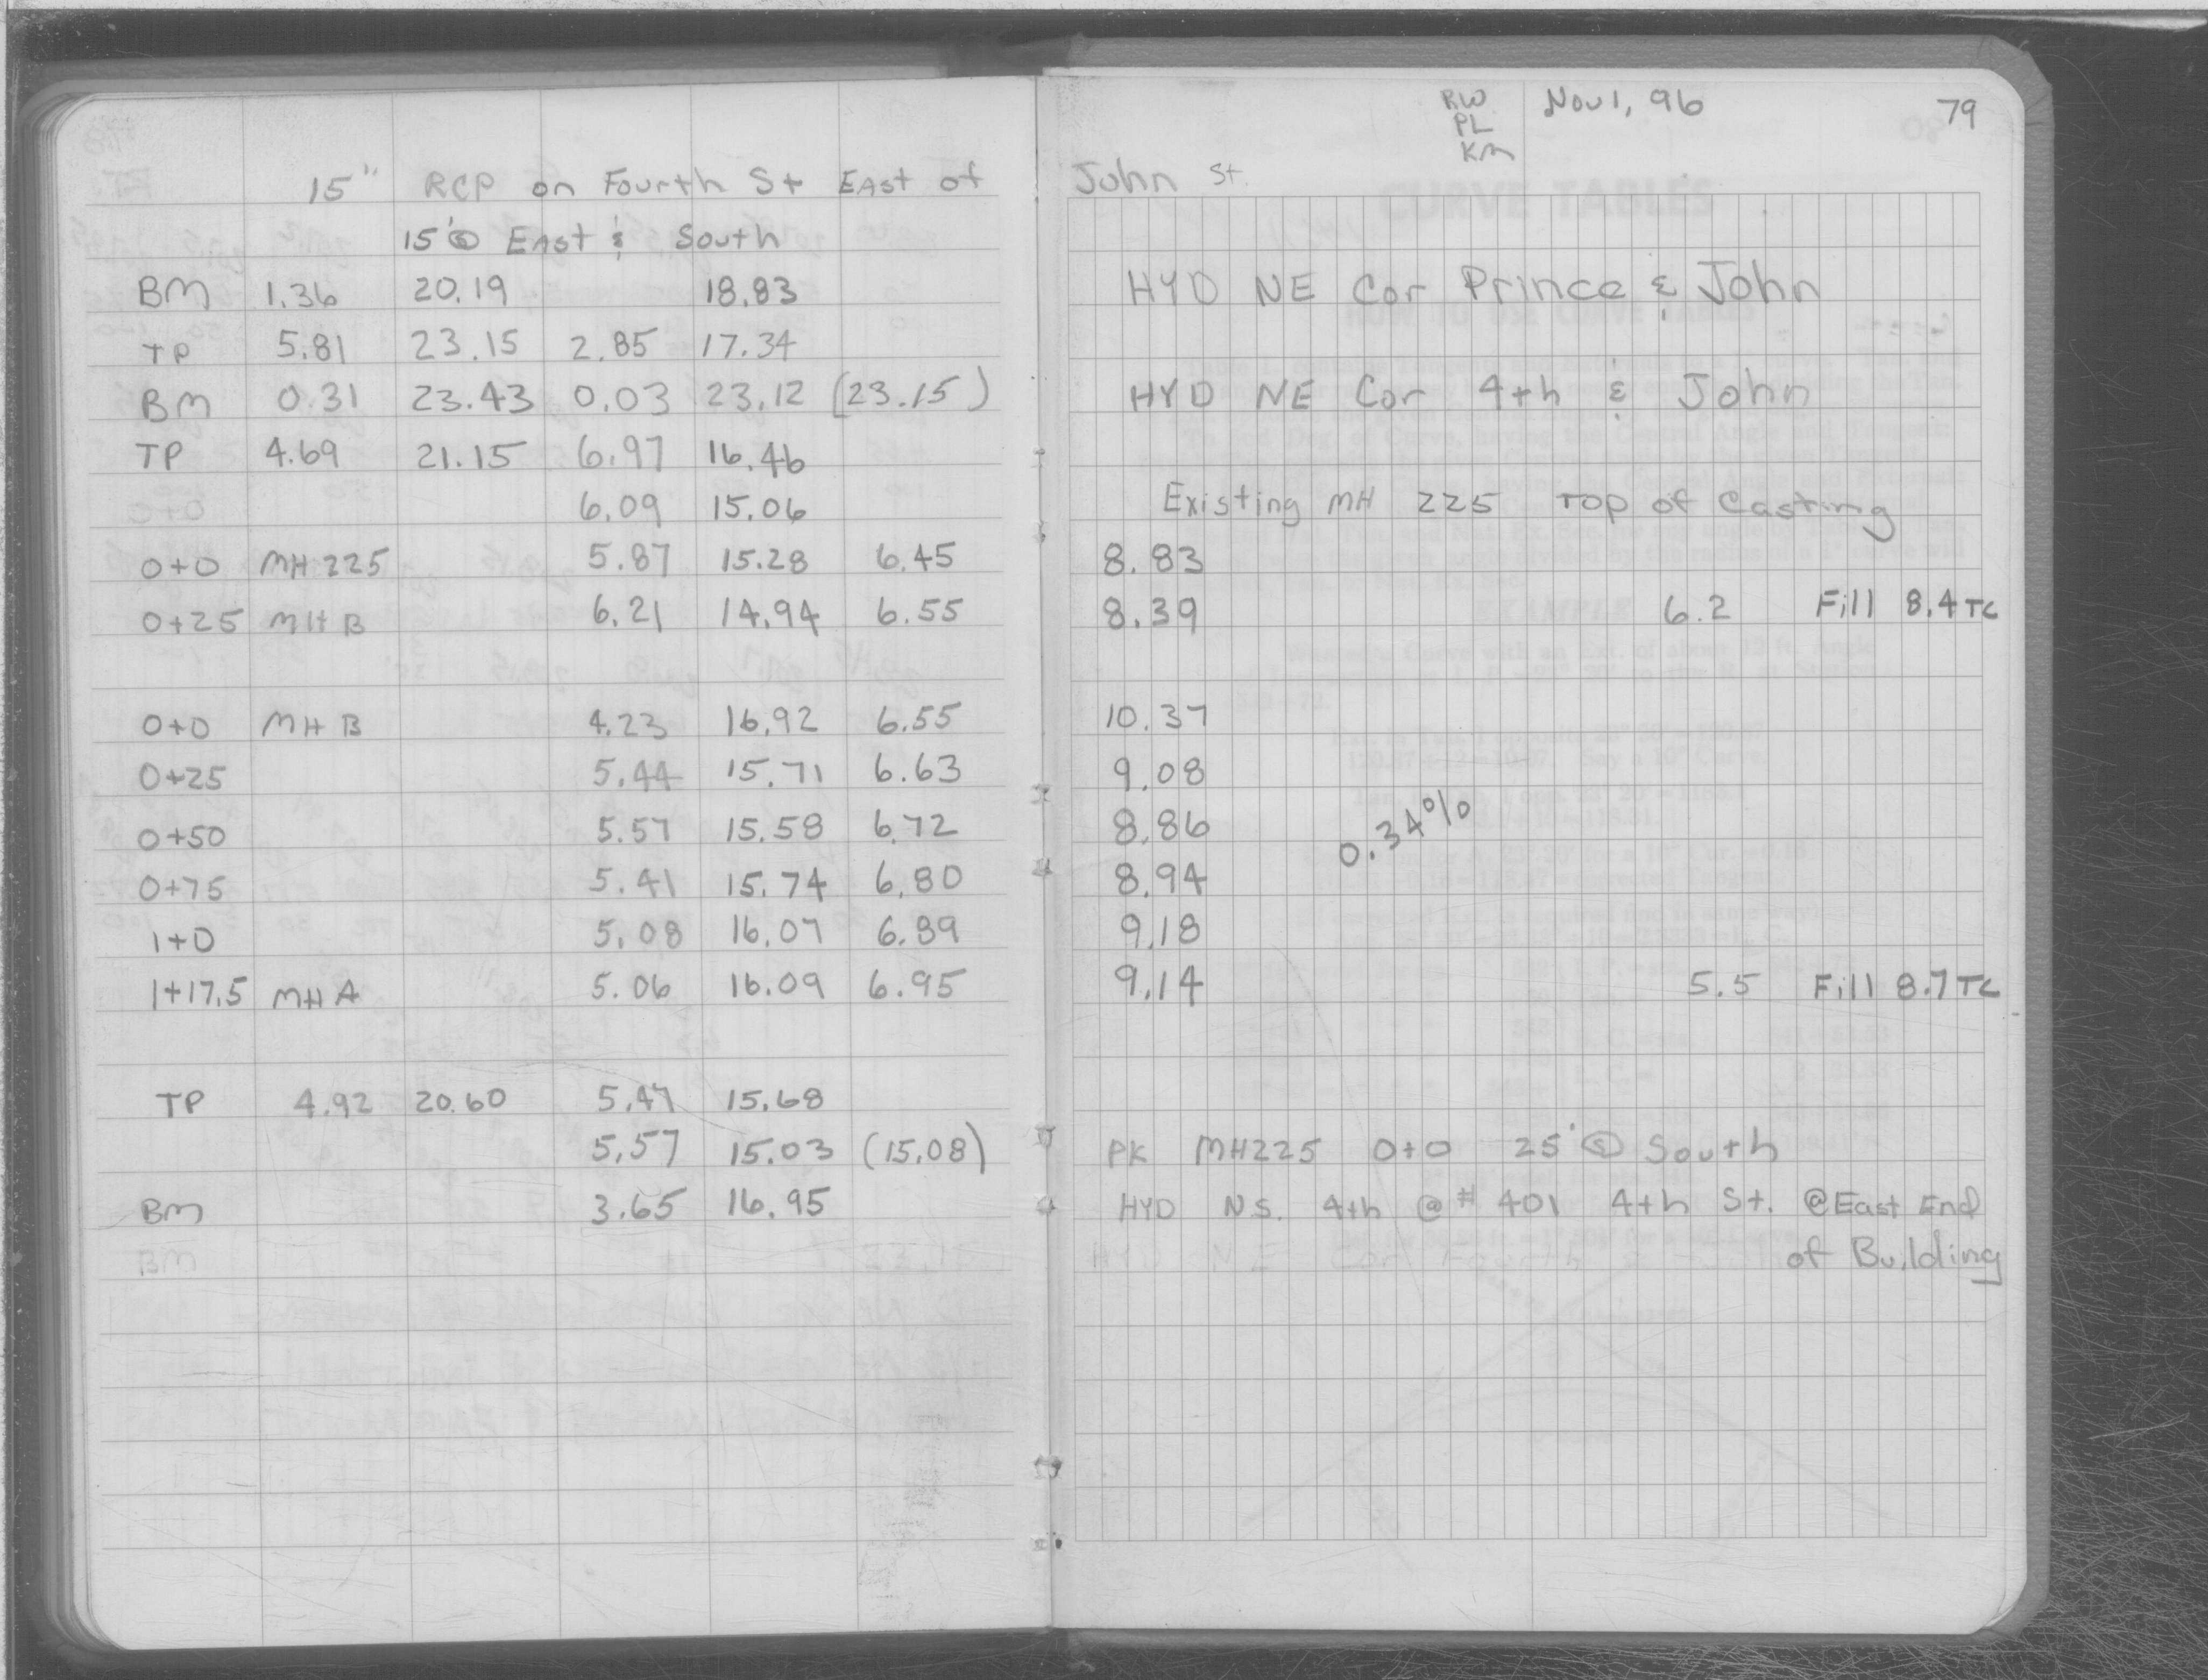 RW Nov 1, 96 79
PL
KM
15" RCP on Fourth St East of John St.
15' @ East & South
BM 1.36 20.19 18.83 HYD NE Cor Prince & John
TP 5.81 23.15 2.85 17.34
BM 0.31 23.43 0.03 23.12 (23.15) HYD NE Cor 4th & John
TP 4.69 21.15 6.97 16.46
6.09 15.06 Existing MH 225 Top of Casting
0+0 MH 225 5.87 15.28 6.45 8.83
0+25 MH B 6.21 14.94 6.55 8.39 6.2 Fill 8.4 TC
0+0 MH B 4.23 16.92 6.55 10.37
0+25 5.44 15.71 6.63 9.08
0+50 5.57 15.58 6.72 8.86 0.34%
0+75 5.41 15.74 6.80 8.94
1+0 5.08 16.07 6.89 9.18
1+17.5 MH A 5.06 16.09 6.95 9.14 5.5 Fill 8.7 TC
TP 4.92 20.60 5.47 15.68
5.57 15.03 (15.08) PK MH225 0+0 25' @ South
BM 3.65 16.95 HYD N.S. 4th @ # 401 4th St. @ East End
of Building
BM HYD NE Cor Fourth